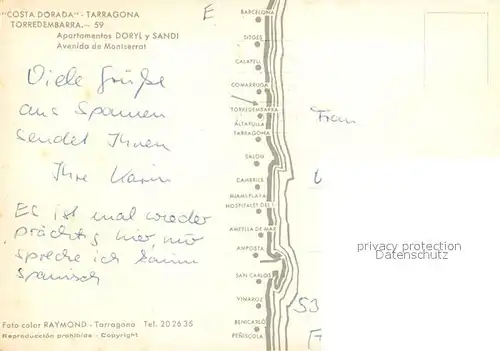 "COSTA DORADA" - TARRAGONA
TORREDEMBARRA. - 59
Apartamentos DORYL y SANDI
Avenida de Montserrat
E
Viele Grüße
aus Spanien
sendet Ihnen
Ihre Karin
Es ist mal wieder
prächtig hier, nur
spreche ich kaum
spanisch
Foto color RAYMOND - Tarragona Tel. 20 26 35
Reproducción prohibida - Copyright
BARCELONA
SITGES
CALAFELL
COMARRUGA
TORREDEMBARRA
ALTAFULLA
TARRAGONA
SALOU
CAMBRILS
MIAMI PLAYA
HOSPITALET DEL I.
AMETLLA DE MAR
AMPOSTA
SAN CARLOS
VINAROZ
BENICARLÓ
PEÑISCOLA
Frau
privacy protection
Datenschutz
53